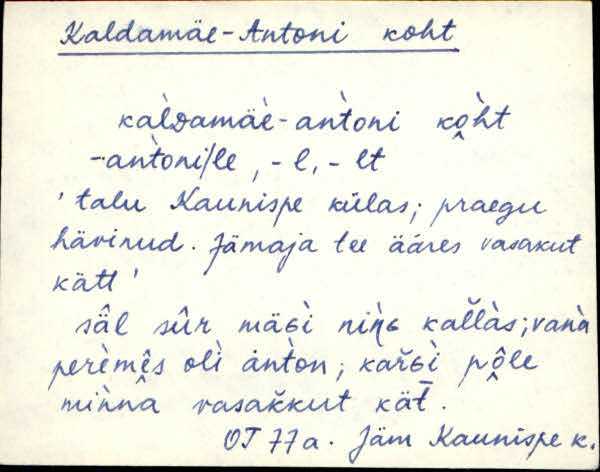 Kaldamäe-Antoni koht
kàlᴅamäè-an̆̀toni kò̭ht
-an̆̀toni/le, -l, -lt
'talu Kaunispe külas; praegu
hävinud. Jämaja tee ääres vasakut
kätt'
sä̂l sûr mäɢì niǹɢ kal̆làs; vanà
perèmês olì an̆̀ton; kar̆ɢì pô̭le
miǹnâ vasak̆kut kät̄.
OT 77a. Jäm Kaunispe k.